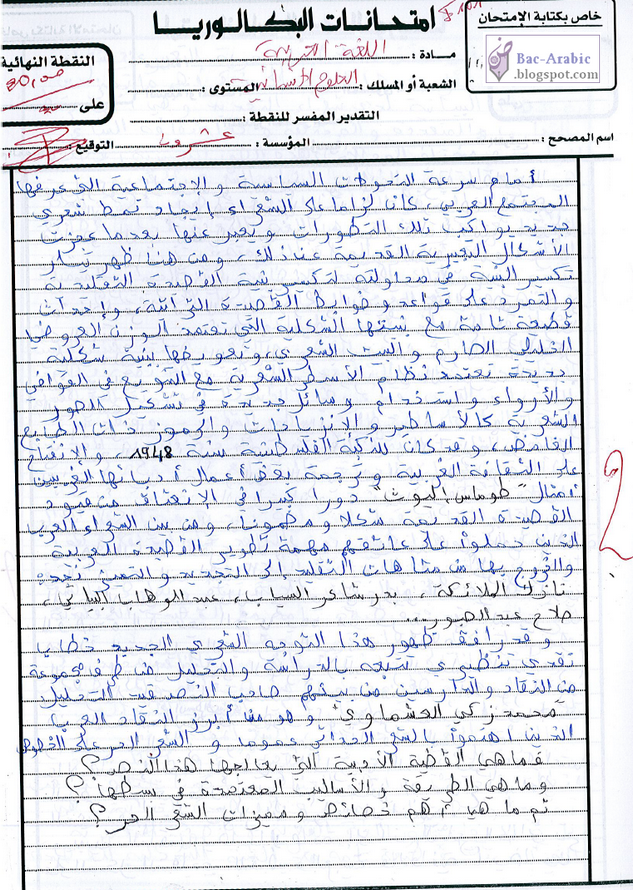 خاص بكتابة الإمتحان
امتحانات البكالوريا
Bac-Arabic
.blogspot.com
مادة : اللغة العربية
النقطة النهائية
20,00
الشعبة أو المسلك : العلوم الإنسانية المستوى :
على
التقدير المفسر للنقطة :
اسم المصحح : المؤسسة : عشرون التوقيع :
أمام سرعة التحولات السياسة والإجتماعية التي عرفها
المجتمع العربي، كان لزاما على الشعراء إيجاد نمط شعري
جديد يواكب تلك التطورات ويعبر عنها بعدما عجزت
الأشكال التعبيرية القديمة عن ذلك، ومن هنا ظهر تيار
تكسير البنية في محاولته لتكسير بنية القصيدة التقليدية
والتمرد على قواعد وضوابط القصيدة التراثية، وإحداث
قطيعة تامة مع بنيتها الشكلية التي تعتمد الوزن العروضي
الخليلي الصارم والبيت الشعري، وتعويضها ببنية شكلية
جديدة تعتمد نظام الأسطر الشعرية مع التنويع في القوافي
والأرواء واستخدام وسائل جديدة في تشكيل الصور
الشعرية كالأساطير والإنزياحات والرموز ذات الطابع
الغامض، وقد كان للنكبة الفلسطينية سنة 1948، والإنفتاح
على الثقافة الغربية وترجمة بعض أعمال أدبائها الغربيين
أمثال "طوماس إليوت" دورا كبيرا في الإنعتاق من قيود
القصيدة القديمة شكلا ومضمونا، ومن بين الشعراء العرب
الذين حملوا على عاتقهم مهمة تطوير القصيدة العربية
والخروج بها من متاهات التقليد إلى التجديد والتميز نجد
نازك الملائكة، بدر شاكر السياب، عبد الوهاب البياتي،
صلاح عبد الصبور...
وقد رافق ظهور هذا التوجه الشعري الجديد خطاب
نقدي تنظيري تتبعه بالدراسة والتحليل من طرف مجموعة
من النقاد والدارسين من بينهم صاحب النص قيد التحليل
"محمد زكي العشماوي" وهو من أبرز النقاد العرب
الذين اهتموا بالشعر الحداثي عموما والشعر الحر على الخصوص
فما هي القضية الأدبية التي يعالجها هذا النص؟
وما هي الطريقة والأساليب المعتمدة في بسطها؟
ثم ما هي أهم خصائص ومميزات الشعر الحر؟
2